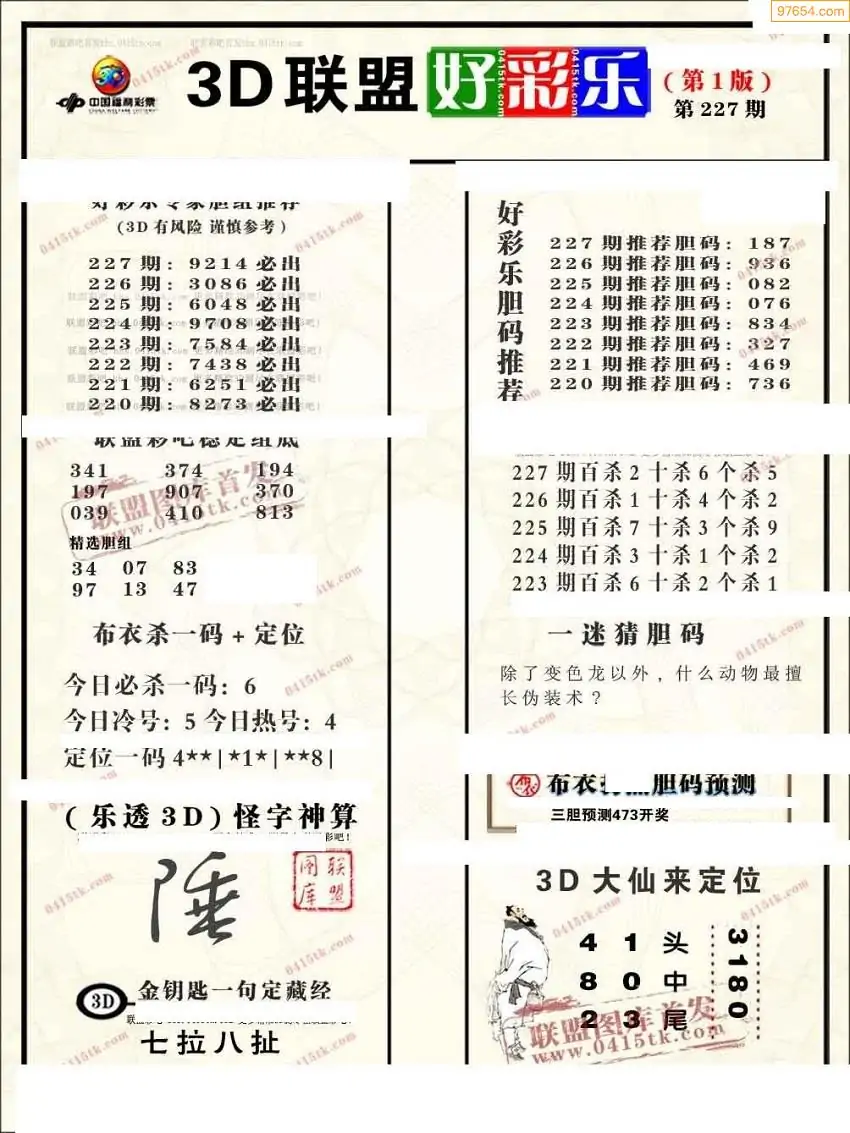 97654.com
3D联盟好彩乐
0415tk.com
0415tk.com
0415tk.com
(第1版)
第227期
中国福利彩票
CHINA WELFARE LOTTERY
好彩乐专家胆组推荐
(3D有风险 谨慎参考)
227期: 9214必出
226期: 3086必出
225期: 6048必出
224期: 9708必出
223期: 7584必出
222期: 7438必出
221期: 6251必出
220期: 8273必出
联盟彩吧稳定组底
341 374 194
197 907 370
039 410 813
联盟图库首发
www.0415tk.com
精选胆组
34 07 83
97 13 47
布衣杀一码+定位
今日必杀一码: 6
今日冷号: 5 今日热号: 4
定位一码4**|*1*|**8|
(乐透3D)怪字神算
陲
联盟图库
3D
金钥匙一句定藏经
七拉八扯
好彩乐胆码推荐
227期推荐胆码: 187
226期推荐胆码: 936
225期推荐胆码: 082
224期推荐胆码: 076
223期推荐胆码: 834
222期推荐胆码: 327
221期推荐胆码: 469
220期推荐胆码: 736
227期百杀2十杀6个杀5
226期百杀1十杀4个杀2
225期百杀7十杀3个杀9
224期百杀3十杀1个杀2
223期百杀6十杀2个杀1
一迷猜胆码
除了变色龙以外，什么动物最擅
长伪装术？
布衣 胆码预测
三胆预测473开奖
3D大仙来定位
4 1 头
8 0 中
2 3 尾
3180
联盟图库首发
www.0415tk.com